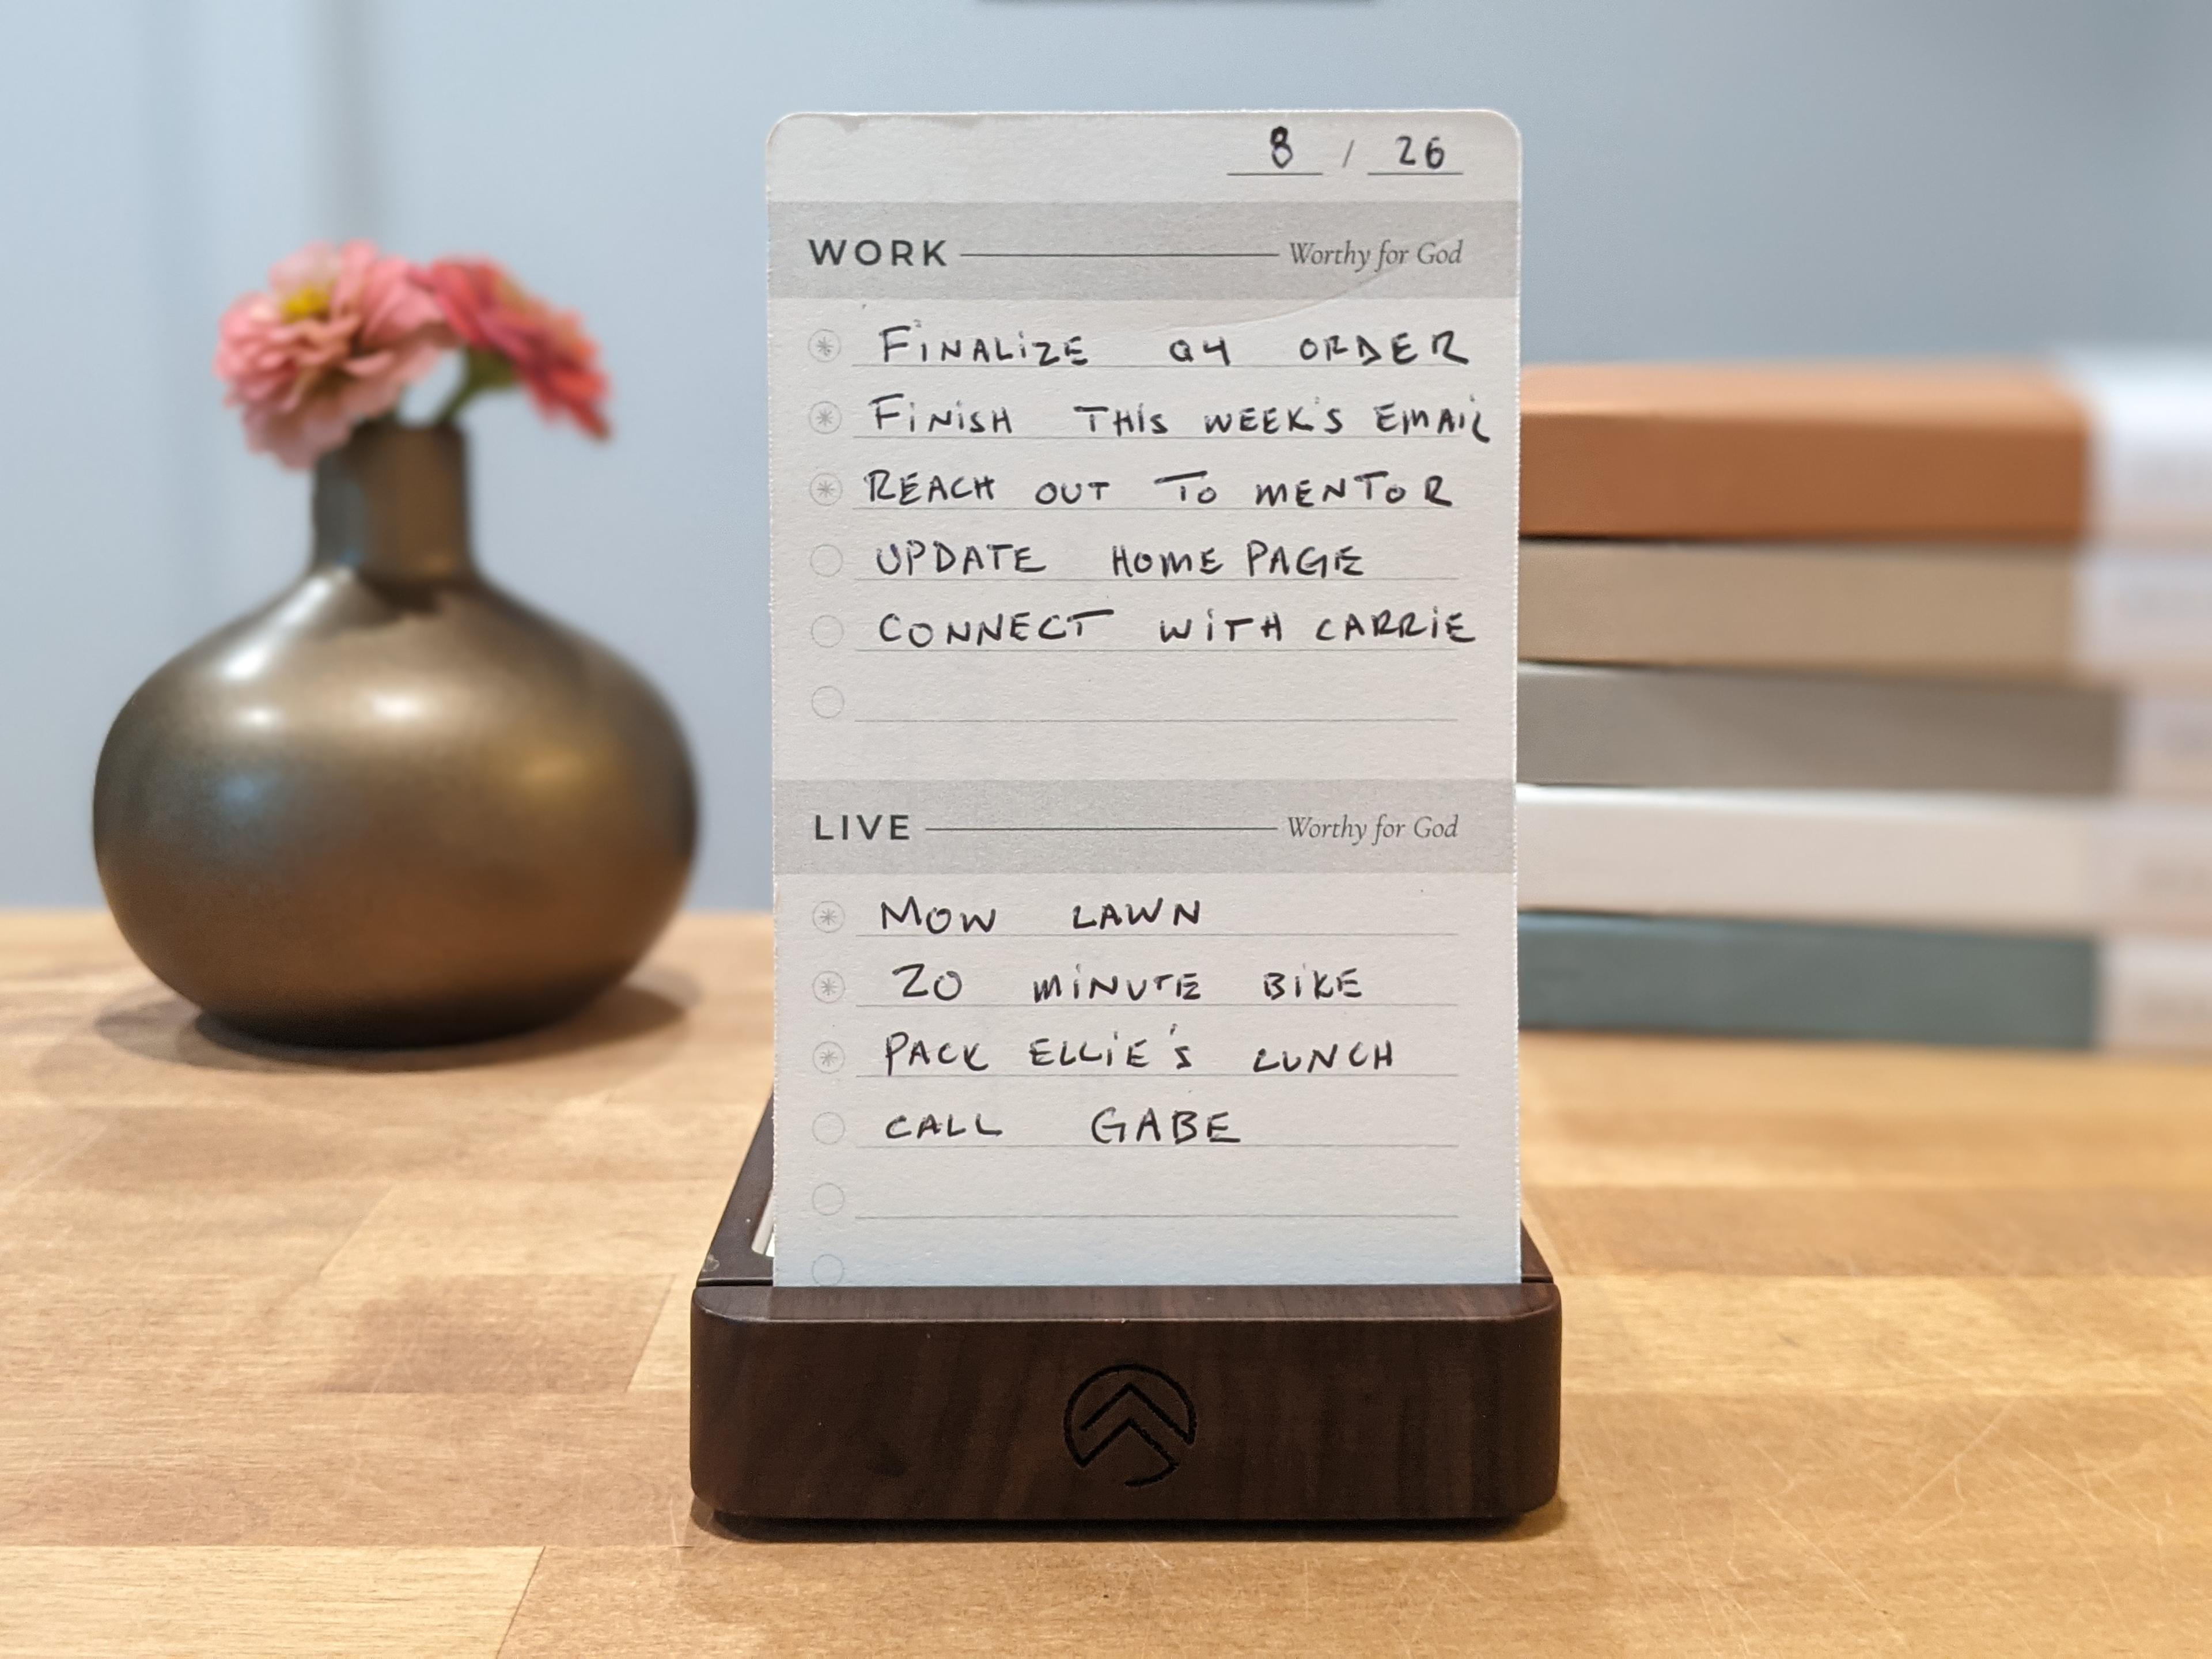 8 / 26
WORK Worthy for God
FINALIZE Q4 ORDER
FINISH THIS WEEK'S EMAIL
REACH OUT TO MENTOR
UPDATE HOME PAGE
CONNECT WITH CARRIE
LIVE Worthy for God
MOW LAWN
20 MINUTE BIKE
PACK ELLIE'S LUNCH
CALL GABE